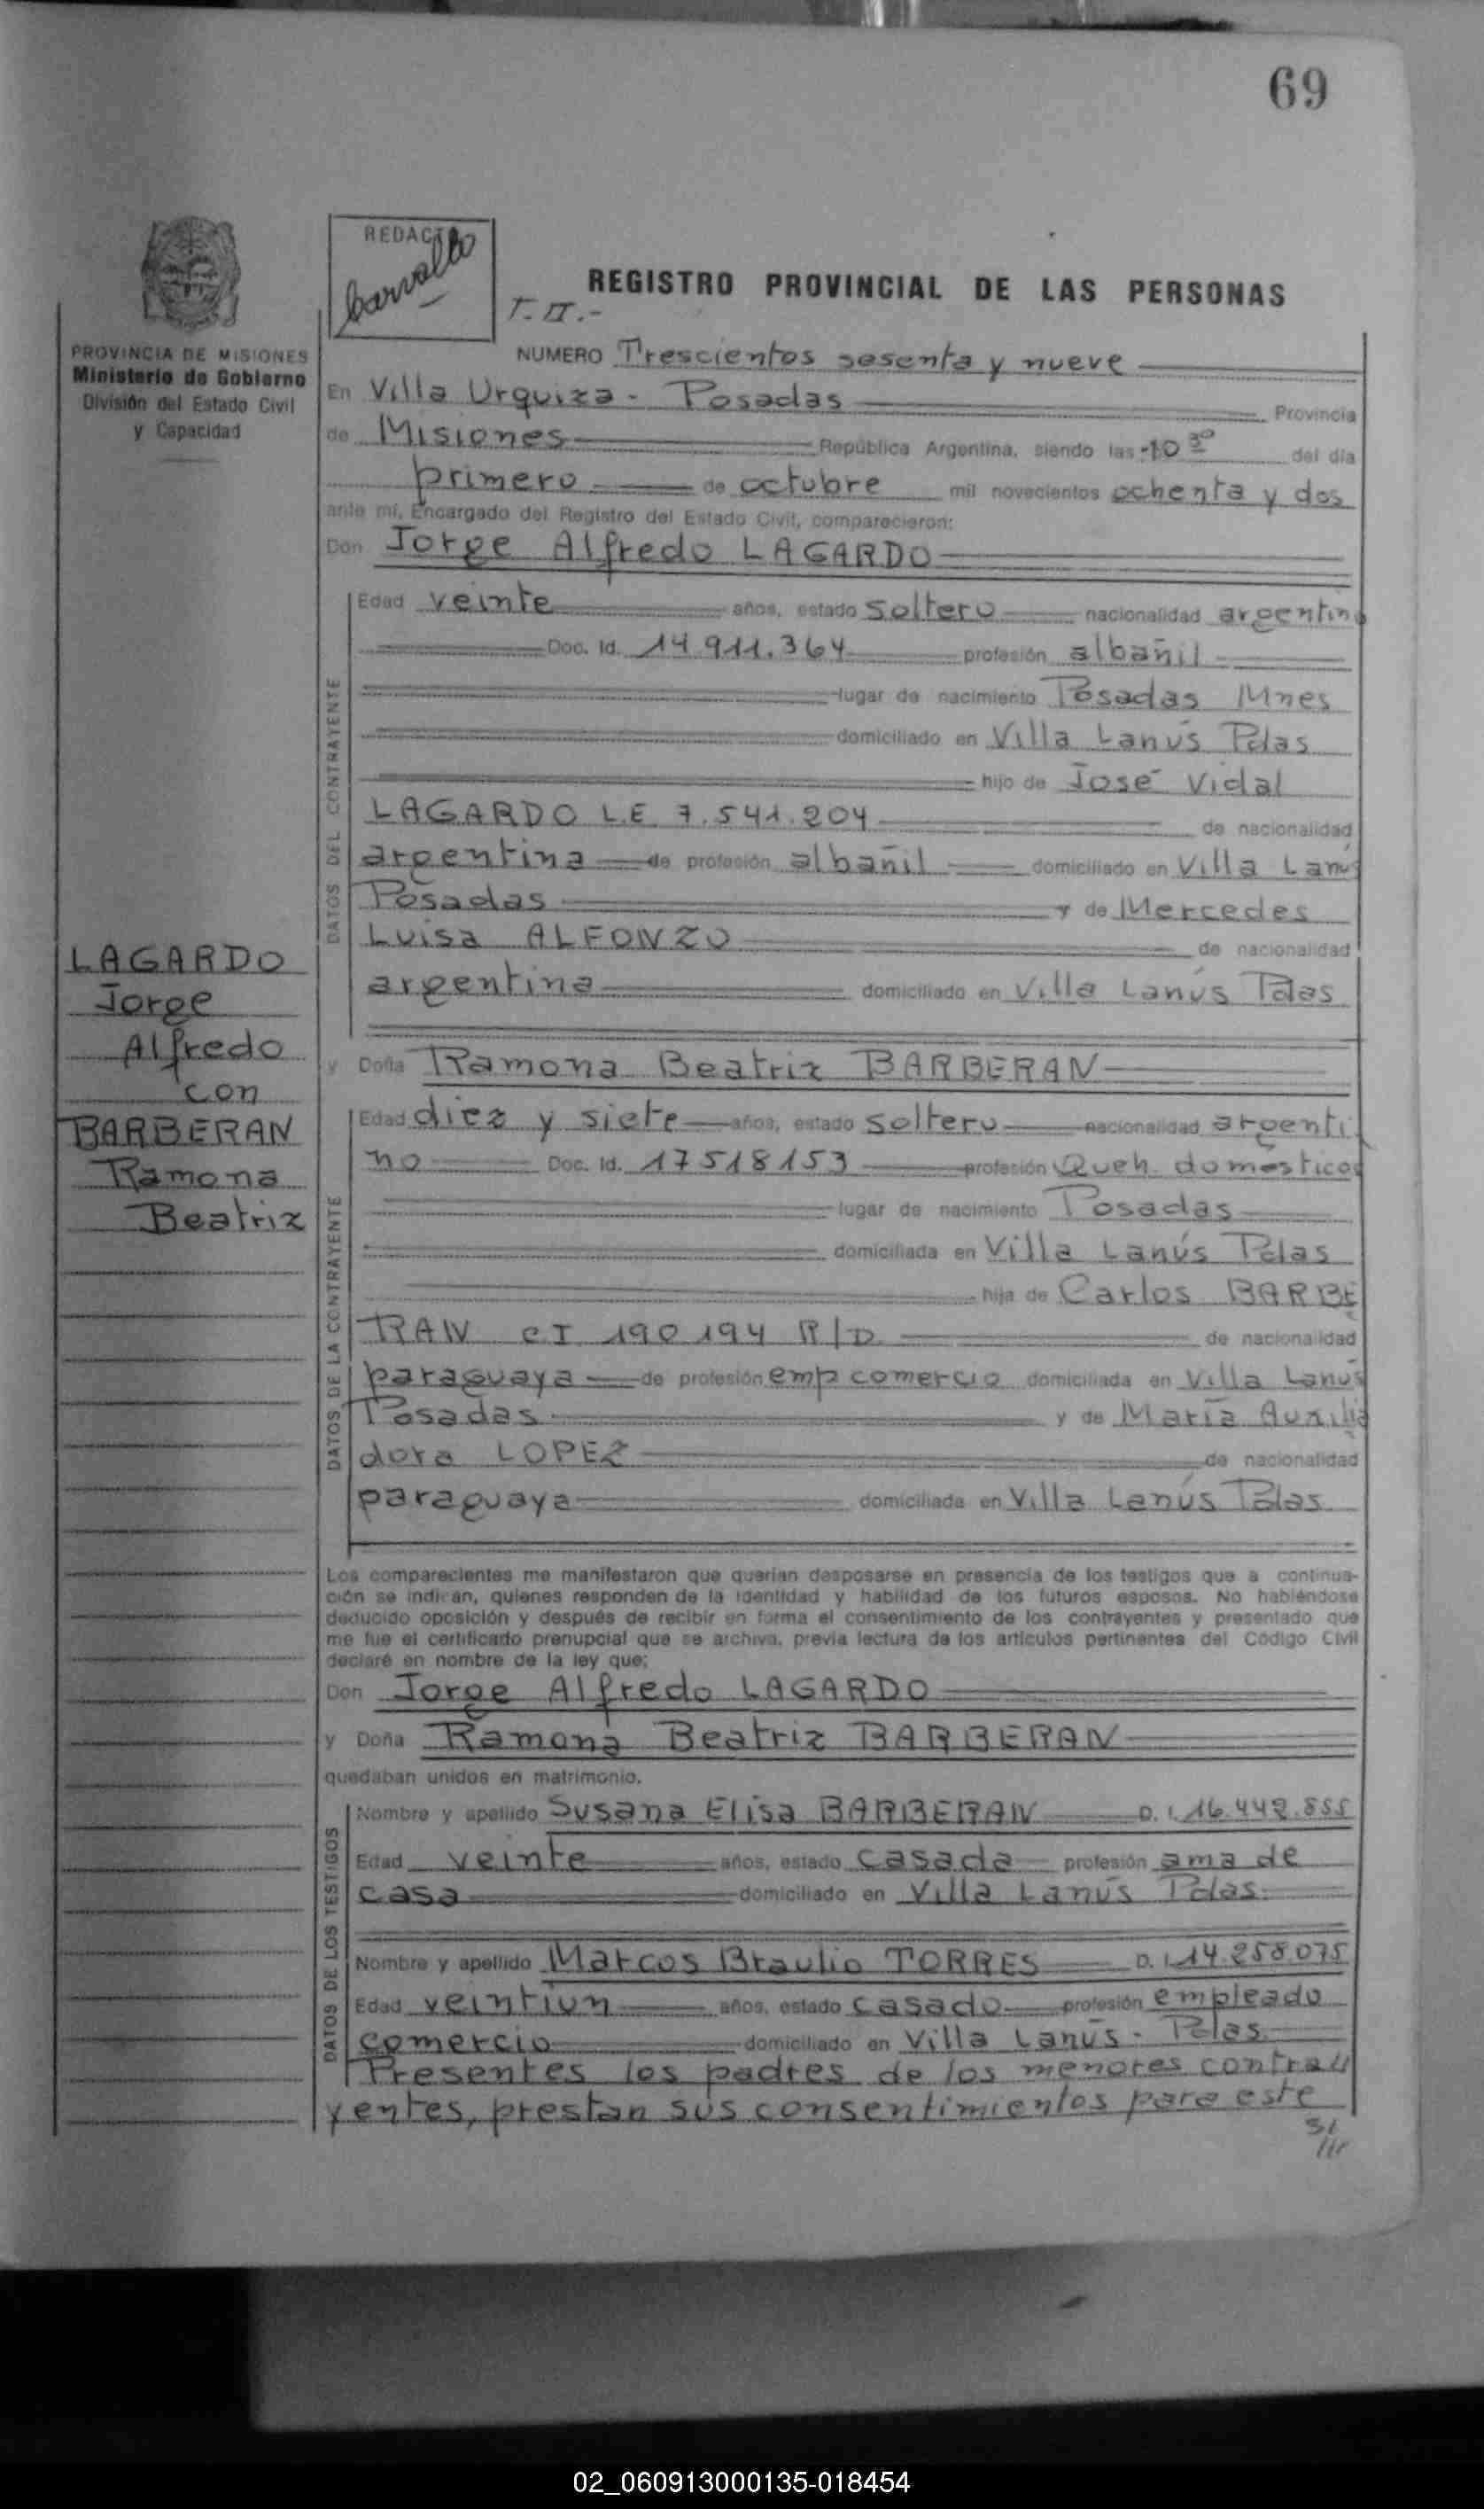 69
REDACTO
barvallo
T. II.-
REGISTRO PROVINCIAL DE LAS PERSONAS
PROVINCIA DE MISIONES
Ministerio de Gobierno
División del Estado Civil
y Capacidad
NUMERO Trescientos sesenta y nueve
En Villa Urquiza - Posadas Provincia
de Misiones República Argentina, siendo las -10 30 del día
primero de octubre mil novecientos ochenta y dos
ante mí, Encargado del Registro del Estado Civil, comparecieron:
Don Jorge Alfredo LAGARDO
DATOS DEL CONTRAYENTE
Edad veinte años, estado soltero nacionalidad argentino
Doc. Id. 14.911.364 profesión albañil
lugar de nacimiento Posadas Mnes
domiciliado en Villa Lanús Pdas
hijo de José Vidal
LAGARDO L.E. 7.541.204 de nacionalidad
argentina de profesión albañil domiciliado en Villa Lanús
Posadas y de Mercedes
Luisa ALFONZO de nacionalidad
argentina domiciliado en Villa Lanús Pdas
LAGARDO
Jorge
Alfredo
con
BARBERAN
Ramona
Beatriz
y Doña Ramona Beatriz BARBERAN
DATOS DE LA CONTRAYENTE
Edad diez y siete años, estado soltero nacionalidad argenti
no Doc. Id. 17518153 profesión Queh. domésticos
lugar de nacimiento Posadas
domiciliada en Villa Lanús Pdas
hija de Carlos BARBE
RAN C.I 190194 R/D de nacionalidad
paraguaya de profesión emp comercio domiciliada en Villa Lanús
Posadas y de María Auxilia
dora LOPEZ de nacionalidad
paraguaya domiciliada en Villa Lanús Pdas
Los comparecientes me manifestaron que querían desposarse en presencia de los testigos que a continua-
ción se indican, quienes responden de la identidad y habilidad de los futuros esposos. No habiéndose
deducido oposición y después de recibir en forma el consentimiento de los contrayentes y presentado que
me fue el certificado prenupcial que se archiva, previa lectura de los artículos pertinentes del Código Civil
declaré en nombre de la ley que:
Don Jorge Alfredo LAGARDO
y Doña Ramona Beatriz BARBERAN
quedaban unidos en matrimonio.
DATOS DE LOS TESTIGOS
Nombre y apellido Susana Elisa BARBERAN D.I. 16.442.855
Edad veinte años, estado casada profesión ama de
casa domiciliado en Villa Lanús Pdas.
Nombre y apellido Marcos Braulio TORRES D.I. 14.258.075
Edad veintiun años, estado casado profesión empleado
comercio domiciliado en Villa Lanús - Pdas
Presentes los padres de los menores contra
yentes, prestan sus consentimientos para este
02_060913000135-018454